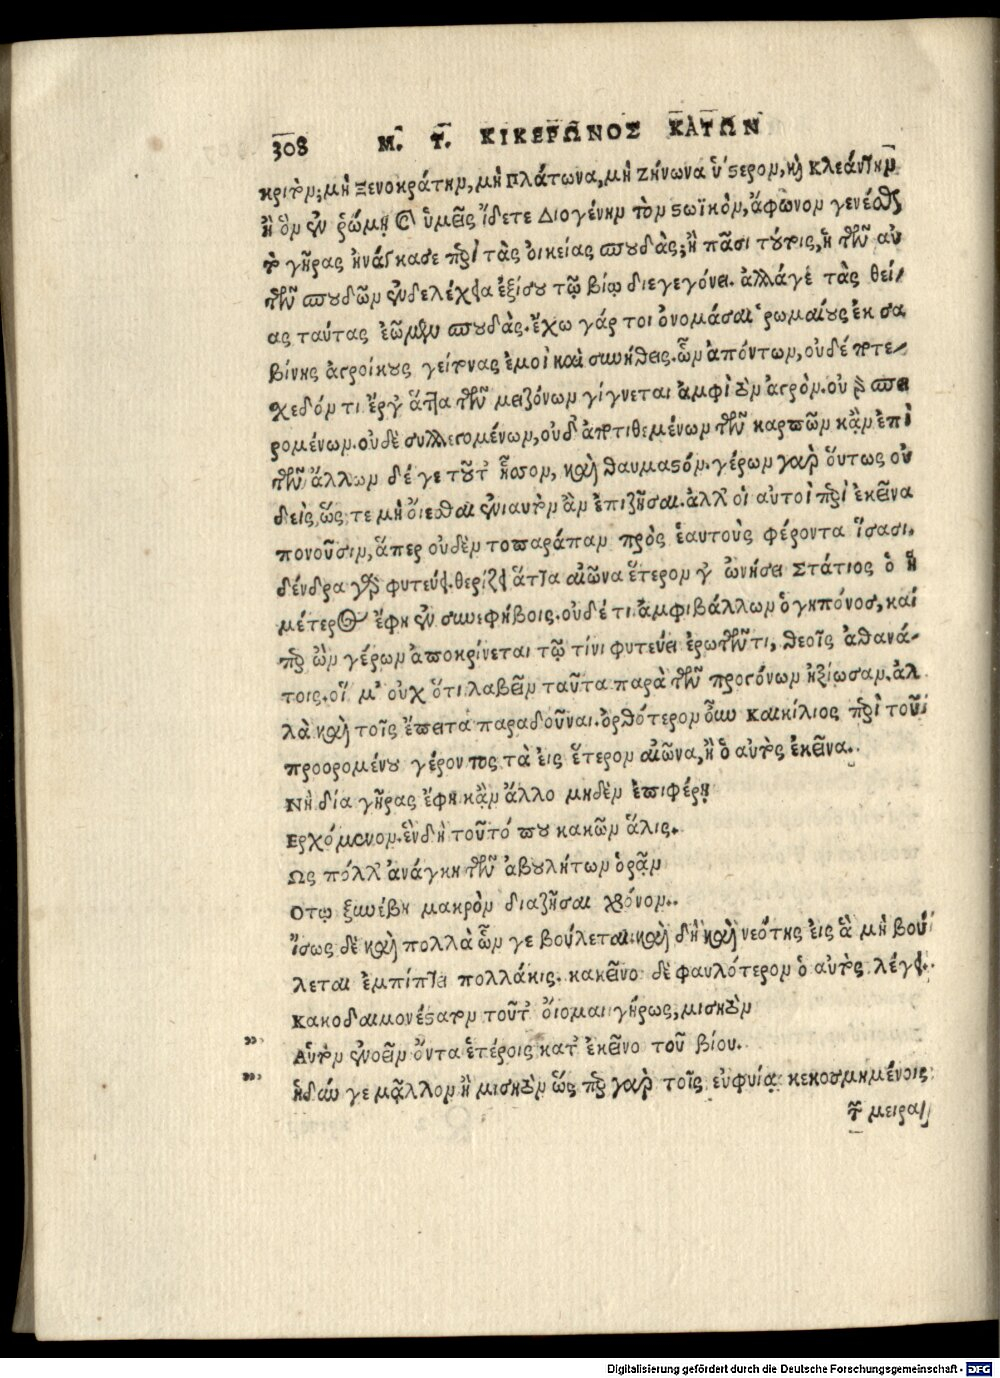 308 Μ. Τ. ΚΙΚΕΡΩΝΟΣ ΚΑΤΩΝ
κριτον; μὴ Ξενοκράτην, μὴ Πλάτωνα, μὴ Ζήνωνα ὕστερον, καὶ Κλεάνθην
ἢ ὃν ἐν ῥώμῃ καὶ ὑμεῖς ἴδετε Διογένην τὸν στωϊκὸν, ἄφωνον γενέσθαι
τὸ γῆρας ἠνάγκασε περὶ τὰς οἰκείας σπουδὰς; ἢ πᾶσι τούτοις, ἡ τῶν αὐ
τῶν σπουδῶν ἐνδελέχεια ἐξίσου τῷ βίῳ διεγεγόνει. ἀλλάγε τὰς θεί/
ας ταύτας ἐῶμεν σπουδὰς. ἔχω γάρ τοι ὀνομάσαι ῥωμαίους ἐκ σα
βίνης ἀγροίκους γείτονας ἐμοὶ καὶ συνήθεις. ὧν ἀπόντων, οὐδέποτε
χεδόν τι ἔργον ἅττα τῶν μειζόνων γίγνεται ἀμφὶ τὸν ἀγρὸν. οὐ σπει
ρομένων. οὐδὲ συλλεγομένων, οὐδ' ἀποτιθεμένων τῶν καρπῶν κἂν ἐπὶ
τῶν ἄλλων δέ γε τοῦτ' ἧσσον, καὶ θαυμαστόν. γέρων γὰρ οὕτως οὐ
δεὶς, ὥς τε μὴ ὄιεσθαι ἐνιαυτὸν ἂν ἐπιζῆσαι. ἀλλ' οἱ αὐτοὶ περὶ ἐκεῖνα
πονοῦσιν, ἅπερ οὐδὲν τοπαράπαν πρὸς ἑαυτοὺς φέροντα ἴσασι.
δένδρα γὰρ φυτεύει. θερίζει ἅττα αἰῶνα ἕτερον ὀνήσει Στάτιος ὁ ἡ
μέτερος ἔφη ἐν συνεφήβοις. οὐδέ τι ἀμφιβάλλων ὁ γηπόνος, καί
περ ὢν γέρων ἀποκρίνεται τῷ τίνι φυτεύει ἐρωτῶντι, θεοῖς ἀθανά-
τοις. οἵ μ' οὐχ ὅτι λαβεῖν ταῦτα παρὰ τῶν προγόνων ἠξίωσαν. ἀλ
λὰ καὶ τοῖς ἔπειτα παραδοῦναι. ὀρθότερον οὖν Καικίλιος περὶ τοῦ
προορομένου γέροντος τὰ εἰς ἕτερον αἰῶνα, ἢ ὁ αὐτὸς ἐκεῖνα.
Νὴ δία γῆρας ἔφη κἂν ἄλλο μηδὲν ἐπιφέρῃ
Ερχόμενον. ἓν δὴ τοῦτό που κακῶν ἅλις.
Ως πόλλ' ἀνάγκη τῶν ἀβουλήτων ὁρᾷν
Οτῳ ξυνέβη μακρὸν διαζῆσαι χρόνον.
ἴσως δὲ καὶ πολλὰ ὧν γε βούλεται. καὶ δὴ καὶ νεότης εἰς ἃ μὴ βού
λεται ἐμπίπτει πολλάκις. κακεῖνο δὲ φαυλότερον ὁ αὐτὸς λέγει.
Κακοδαιμονέστατον τοῦτ' ὄιομαι γήρως, μισητὸν
Αὑτὸν ἐνοεῖν ὄντα ἑτέροις κατ' ἐκεῖνο τοῦ βίου.
ἡδὺν γε μᾷλλον ἢ μισητὸν ὥς περ γὰρ τοῖς εὐφυίᾳ κεκοσμημένοις
τῶν μειρα/
Digitalisierung gefördert durch die Deutsche Forschungsgemeinschaft - DFG